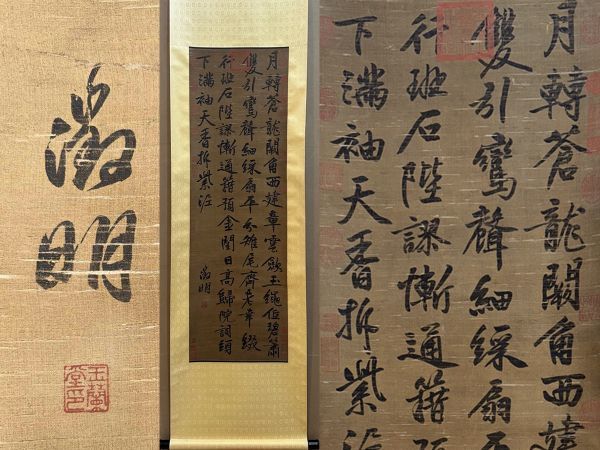 徵明
玉蘭堂印
月轉蒼龍闕角西建章雲斂玉繩低碧簫
雙引鸞聲細綵扇平分雉尾齊老幸綴
行班石陛謬慚通籍預金閨日高歸院詞頭
下滿袖天香拆紫泥
徵明
月轉蒼龍闕角西建
雙引鸞聲細綵扇平
行班石陛謬慚通籍預
下滿袖天香拆紫泥